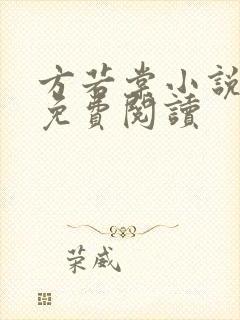 方若棠小說
免費閱讀
荣威